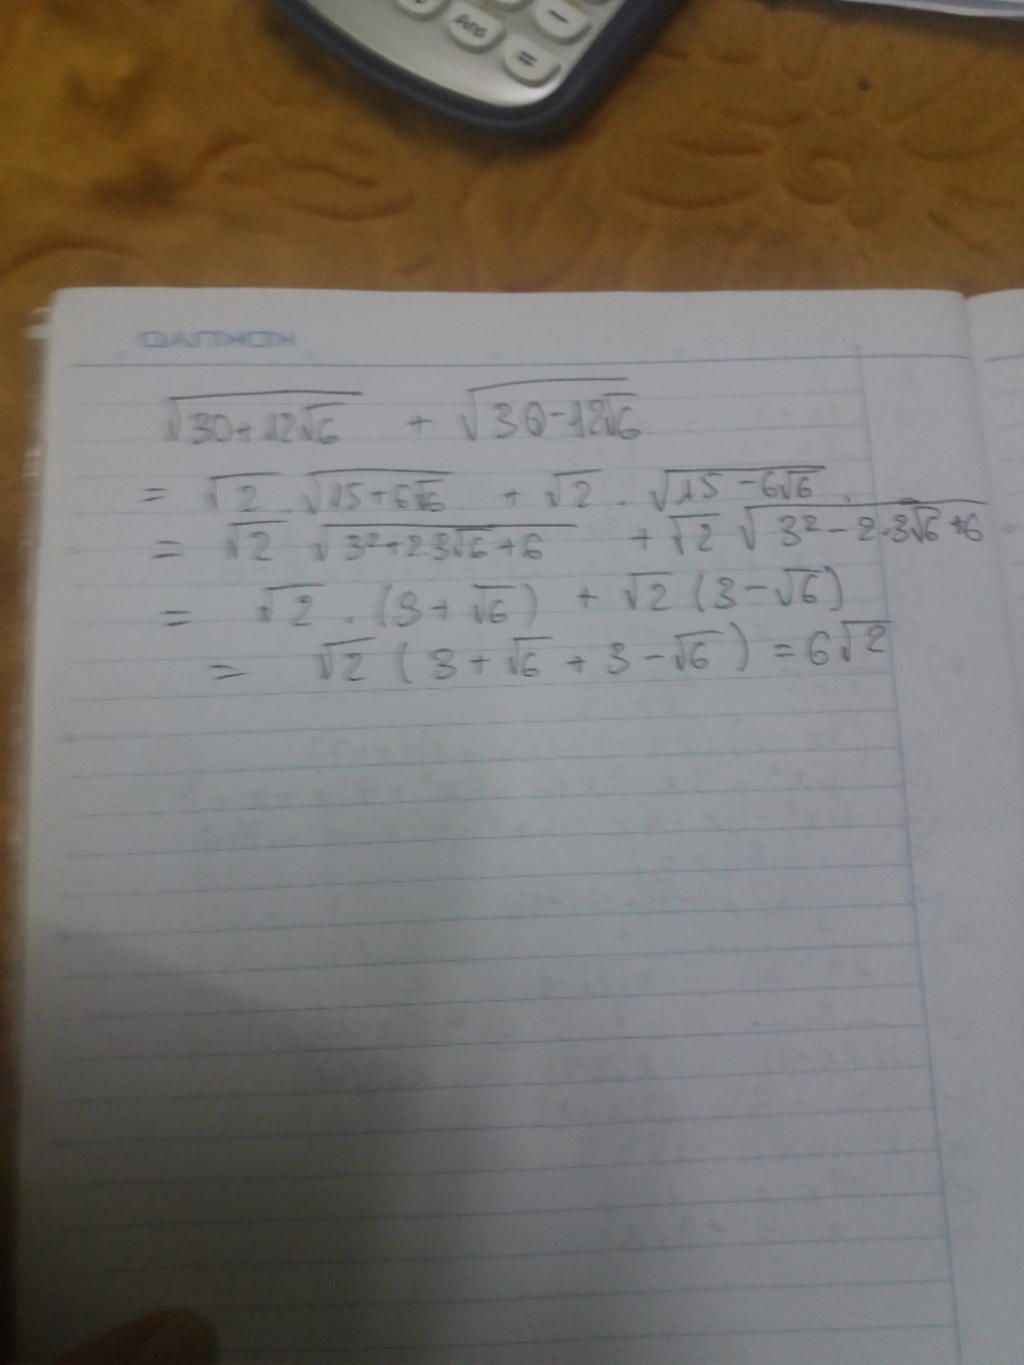 Ans
−
=
√(30+12√6) + √(30-12√6)
= √2 . √(15+6√6) + √2 . √(15-6√6) .
= √2 √(3²+2.3√6+6) + √2 √(3²-2.3√6+6)
= √2 . (3+√6) + √2 (3-√6)
= √2 (3+√6+3-√6) = 6√2